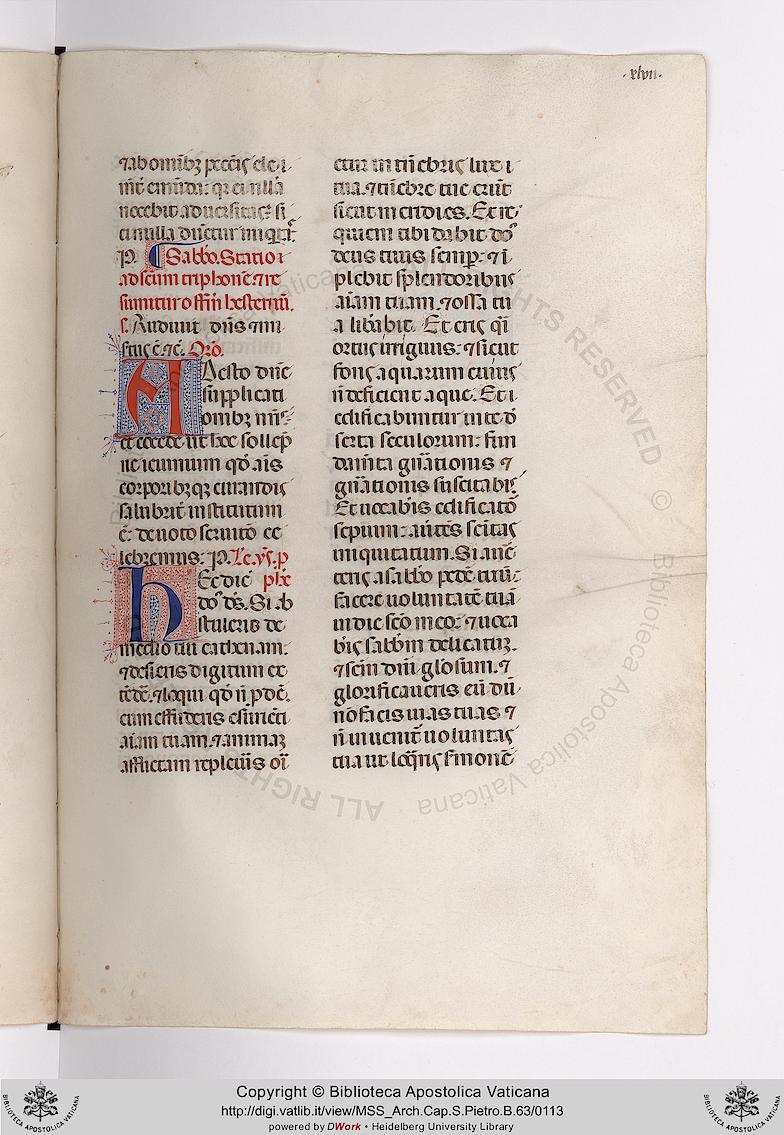 ·xlvii·
⁊ ab omibꝫ pctīs cle i
nīt emūda: qꝛ ei nullā
nocebit aduersitas si
ei nulla dnētur iniqtᷓ.
P. Sabbo. Statio
ad scum triphonē. ⁊ re
sumitur offm hesternū.
s. Audiuit dn̄s ⁊ mi
s̄tus ē. ⁊c̄. Oro.
Adesto dn̄e
supplicati
onibꝫ nrīs
et cōcede ut hoc sollēp
ne ieiunium qd̄ aīs
corporibꝫqꝫ curandis
salubrit̄ institutum
ē: deuoto seruitio ce
lebremus: P. Le. ys. p
Hec dic ph̄e
dn̄s ds̄. Si ab
stuleris de
medio tui cathenam.
⁊ desieris digitum ex
tēdē. ⁊ loqui qd̄ n̄ pdē.
cum effuderis esurieti
aīam tuam. ⁊ animaꝫ
afflictam repleuīs oī
etur in tn̄ebris lux t
tua. ⁊ tn̄ebre tue erūt
sicut meridies. Et re
quiem tibi dabit dn̄s
deus tuus semp. ⁊ ī
plebit splendoribus
aīam tuam. ⁊ ossa tu
a libābit. Et eris qī
ortus irriguus: ⁊ sicut
fons aquarum cuius
n̄ deficient aque. Et
edificabuntur in te d
serta seculorum: fūn
damīta gn̄ationis ⁊
gn̄ationis suscitabis
Et uocabis edificato
sepium: auītēs semitas
iniquitatum. Si auē
teris a sabbo pedē tuū:
facere uoluntatē tuā
in die scō meo: ⁊ uoca
bis sabbm delicatuꝫ.
⁊ scm̄ dn̄i glosum. ⁊
glorificaueris eū dū
nō facis uias tuas ⁊
n̄ inuenit̄ uoluntas
tua ut loqris s̄monē
Copyright © Biblioteca Apostolica Vaticana
http://digi.vatlib.it/view/MSS_Arch.Cap.S.Pietro.B.63/0113
powered by DWork • Heidelberg University Library